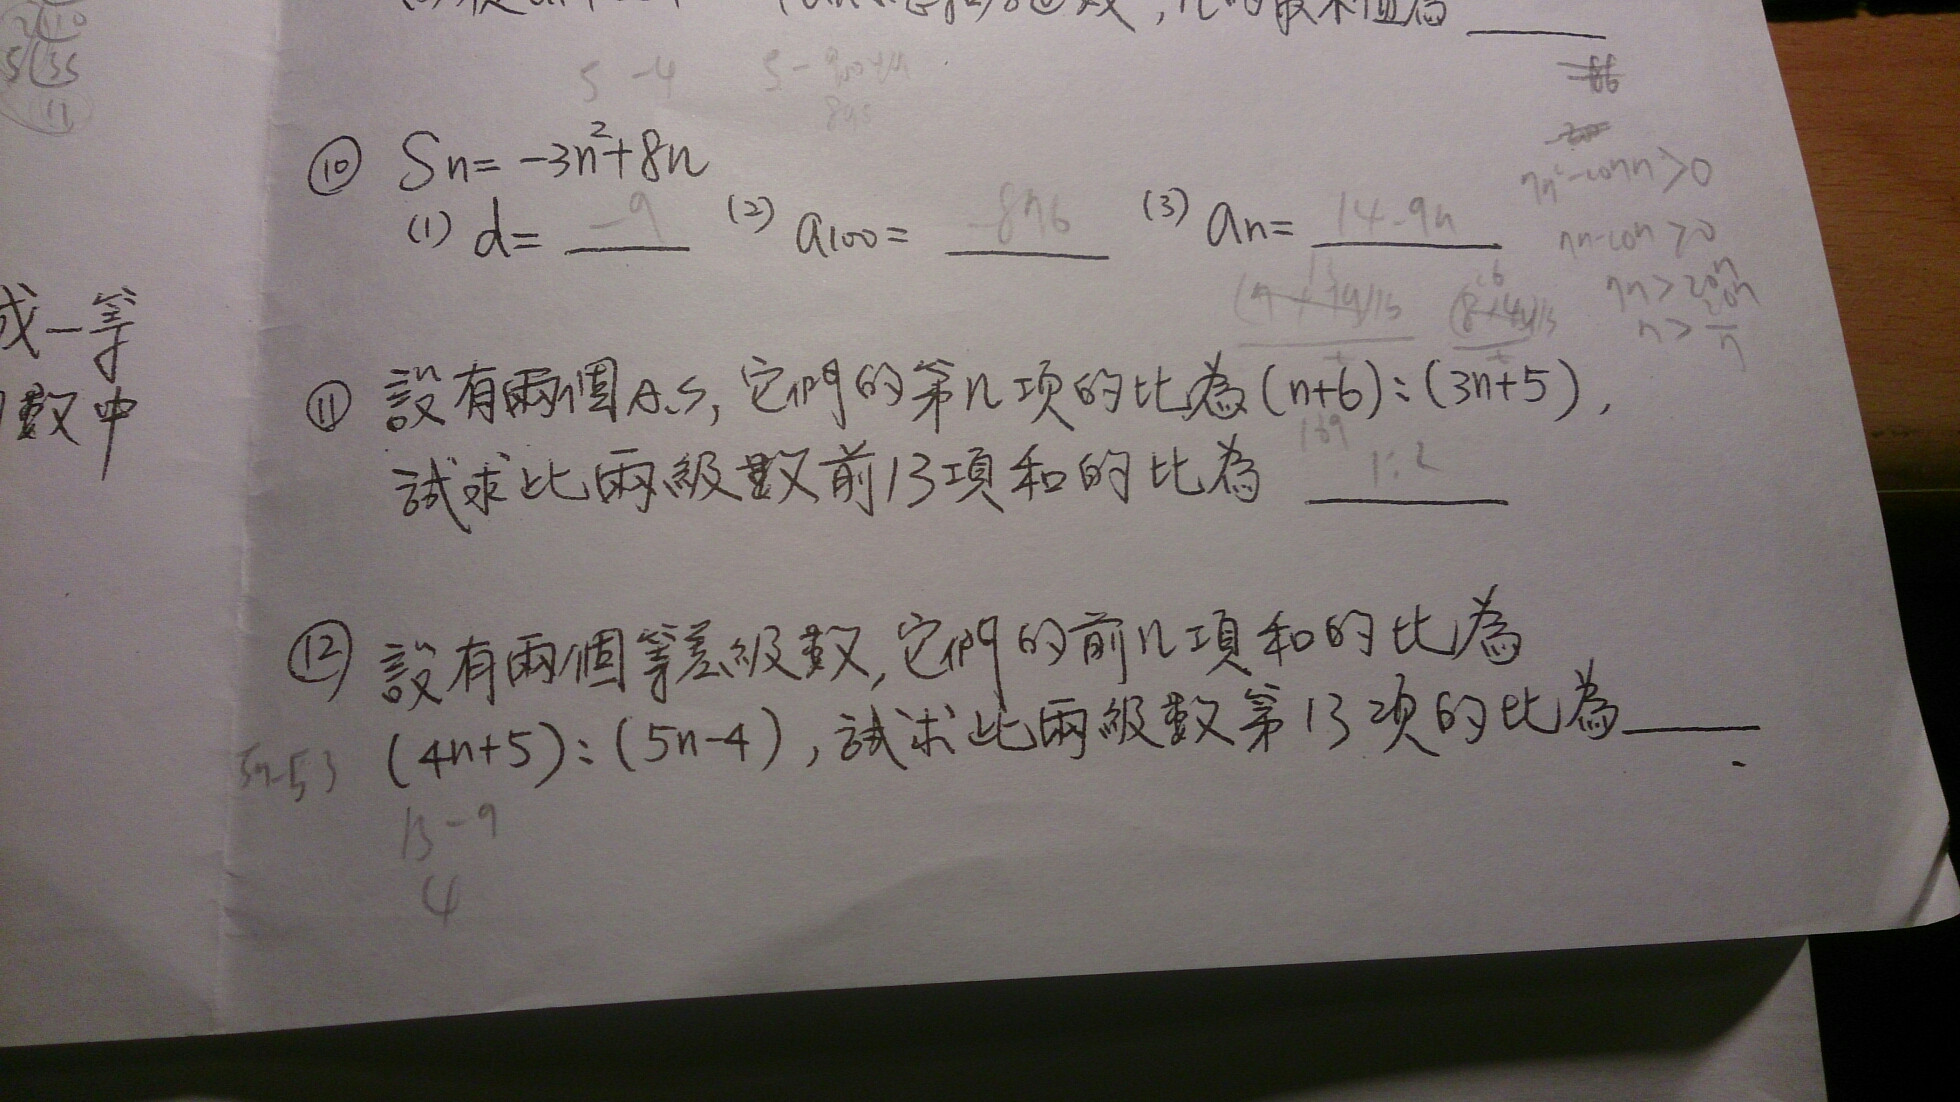 2 110
5 55
11
的最小值為
5 -4
-86
⑩ Sn= -3n²+8n
7n²-207n>0
(1) d= -9 (2) a100= -876 (3) an= 14-9n
n>
成一等
數中
⑪ 設有兩個A.S, 它們的第n項的比為(n+6):(3n+5),
169
試求比兩級數前13項和的比為 1:2
⑫ 設有兩個等差級數,它們的前n項和的比為
(4n+5):(5n-4), 試求比兩級數第13項的比為
13-9
4